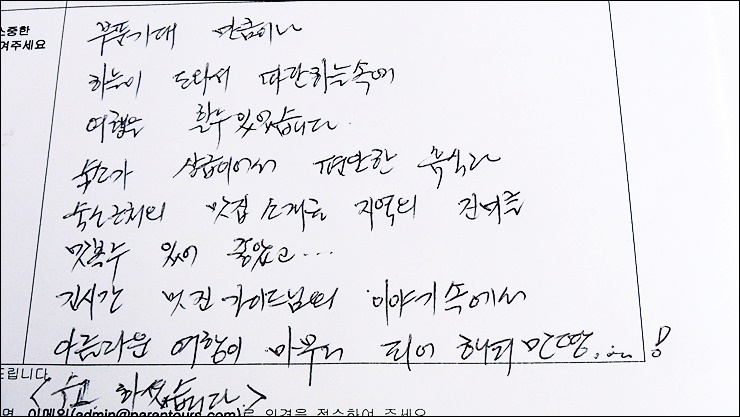 소중한
겨주세요
부품기대 만큼이나
하늘이 도와서 파란하늘속에
여행을 할수있었습니다
숙소가 상급이어서 편안한 휴식과
숙소근처의 맛집소개로 지역의 진미를
맛볼수 있어 좋았고...
긴시간 멋진가이드님의 이야기속에서
아름다운 여행이 마무리 되어 해피만땅. !
드립니다
<수고 하셨습니다>
면 이메일(admin@parentours.com)로 의견을 접수하여 주세요